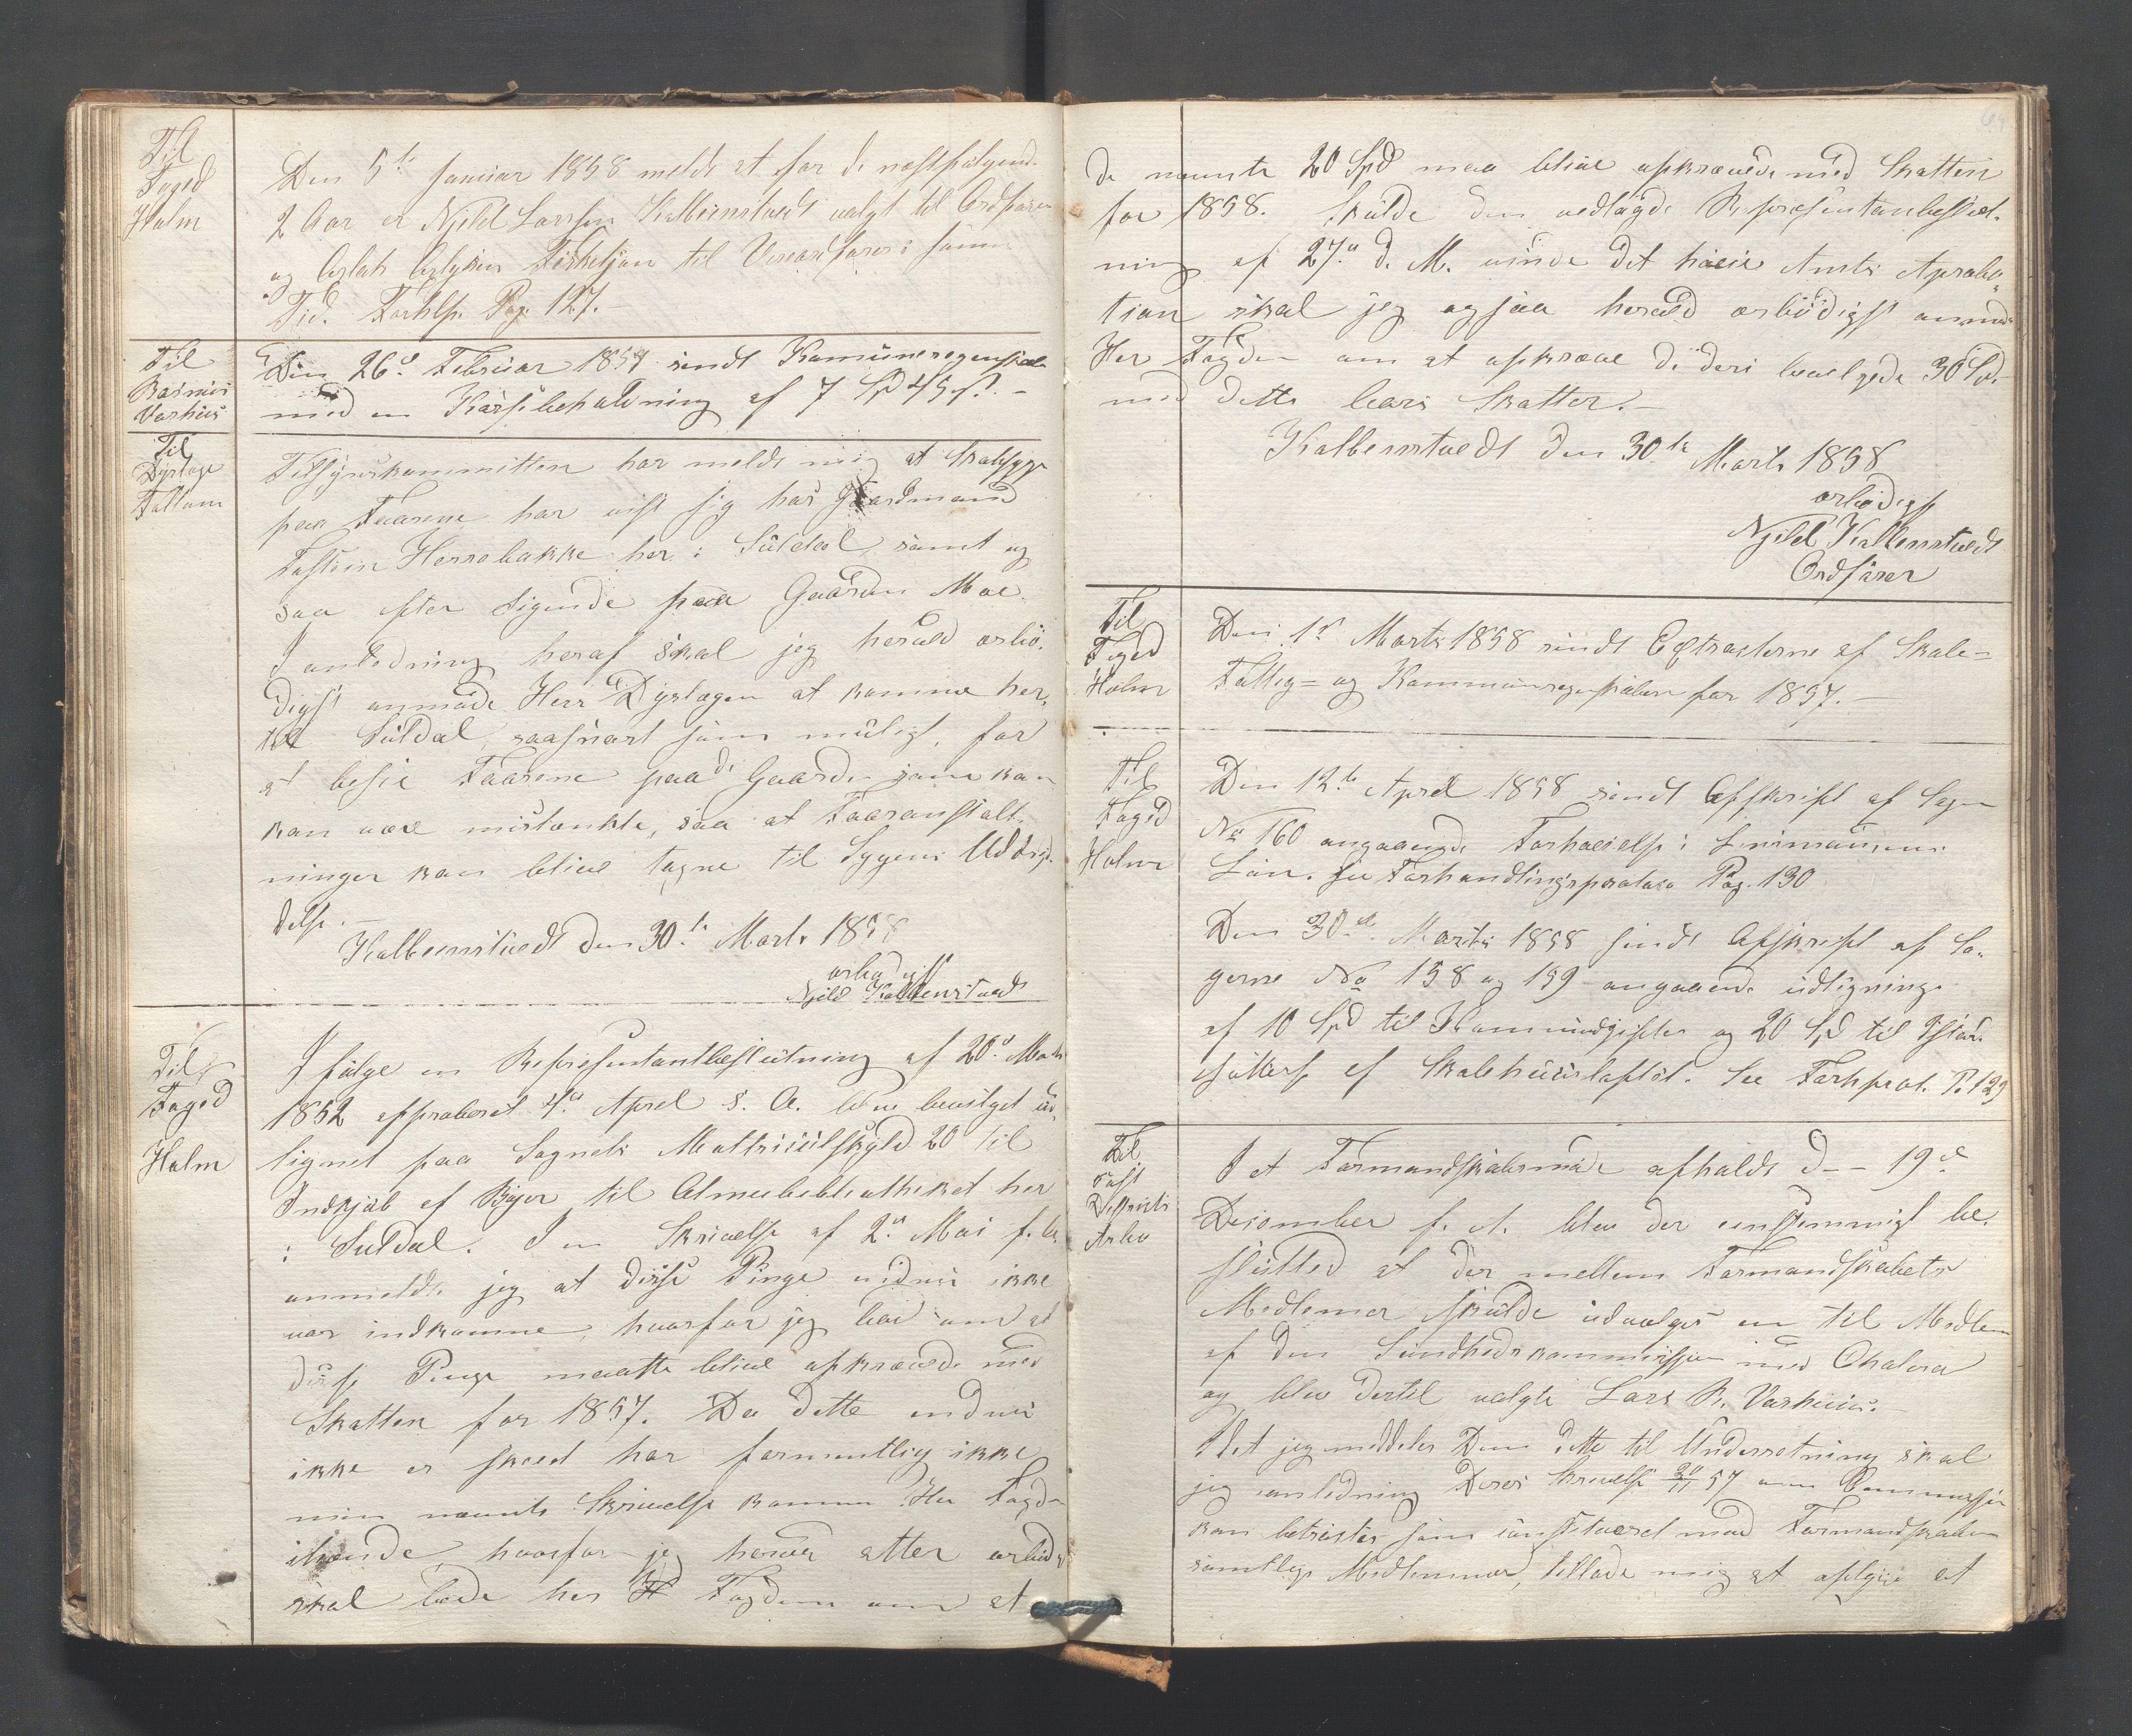 Til
Foged
Holm
Den 5te Januar 1858 meldt at for de næstfølgende
2 Aar er Njeld Larsen Kolbenstvedt valgt til Ordfører
og Aslak Aslaksen til Viceordfører i samme
Tid. Forhlp. Pag. 127.
Til
Rasmus
Vashus
Den 26de Februar 1857 sendt Kommuneregenskabe
med en Kassebeholdning af 7 Spd 45 s. –
Til
Dyrlæge
Tillsynskommitteen har meldt mig at Skabsyge
paa Faarene har vist sig hos Gaardmand
Tostein Herrebakke her i Suldal samt og
saa efter Sigende paa Gaarden Moe.
I anledning heraf skal jeg herved ærbø-
digst anmode Herr Dyrlægen at komme her
til Suldal, saasnart som muligt, for
at besee Faarene paa de Gaarde som kan
kan være mistænkte, saa at Foeranstalt-
ninger kan blive tagne til Sygens Udbryd-
delse. –
Kolbenstvedt den 30te Marts 1858
ærbødigst
Njeld Kolbenstvedt
Til
Foged
Holm
I følge en Represæntantbeslutning af 20de Marts
1852 approberet 4de April s. A. blev bevilget ud-
lignet paa Sognets Mattriculskyld 20 til
Indkjøb af Bøger til Almuebibliotheket her
i Suldal. I en Skrivelse af 2den Mai f. A.
anmeldte jeg at disse Pinge endnu ikke
var indkomne, hvorfor jeg bad om at
disse Penge maatte blive opkrævede med
Skatten for 1857. Da dette endnu
ikke er skeed har formentlig ikke
min nævnte Skrivelse kommen Her Fogden
ihænde, hvorfor jeg herved atter ærbødigst
skal bede her Fogden om at
de nævnte 20 Spd maa blive opkrævede med Skatten
for 1858. Skulde den vedlagde Represæntanbeslut-
ning af 27de d. M. vinde det høie Amts Aproba-
tion skal jeg ogsaa herved ærbødigst anmode
Her Fogden om at opkræve de deri bevilgede 30 Spd
med dette Aars Skatter. –
Kolbenstvedt den 30te Marts 1858
ærbødigst
Njeld Kolbenstvedt
Ordfører
Til
Foged
Holm
Den 1ste Marts 1858 sendt Extrasterne af Skole=
Fattig= og Kommuneregenskaberne for 1857. –
Til
Foged
Holm
Den 12te April 1858 sendt Afskrift af Sagen
No 160 angaaende Forhøielse i Lensmandens
Løn. see Forhandlingsprotoco Pag. 130
Den 30te Marts 1858 sendt Afskrift af Sa-
gerne No 158 og 159 angaaende udligning
af 10 Spd til Kommuneudgifter og 20 Spd til Istand-
sættelse af Skolehuuslaftet. See Forhprot. P. 129
Til
Distrikts
I et Formandskabsmøde afholdt d– 19de
December f. A. blev der eenstemmigt be-
sluttet at der mellem Formandskabets
Medlemer skulde udvælges en til Medlem
af den Sundhedskommission mod Cholera
og blev dertil valgte Lars R. Vashuus. –
Idet jeg meddeler Dem dette til Underretning skal
jeg i anledning Deres Skrivelse 20/11 57 om Commission
kan betragtes som constitueret med Formandskabets
samtlige Medlemmer, tillade mig at oplyse at